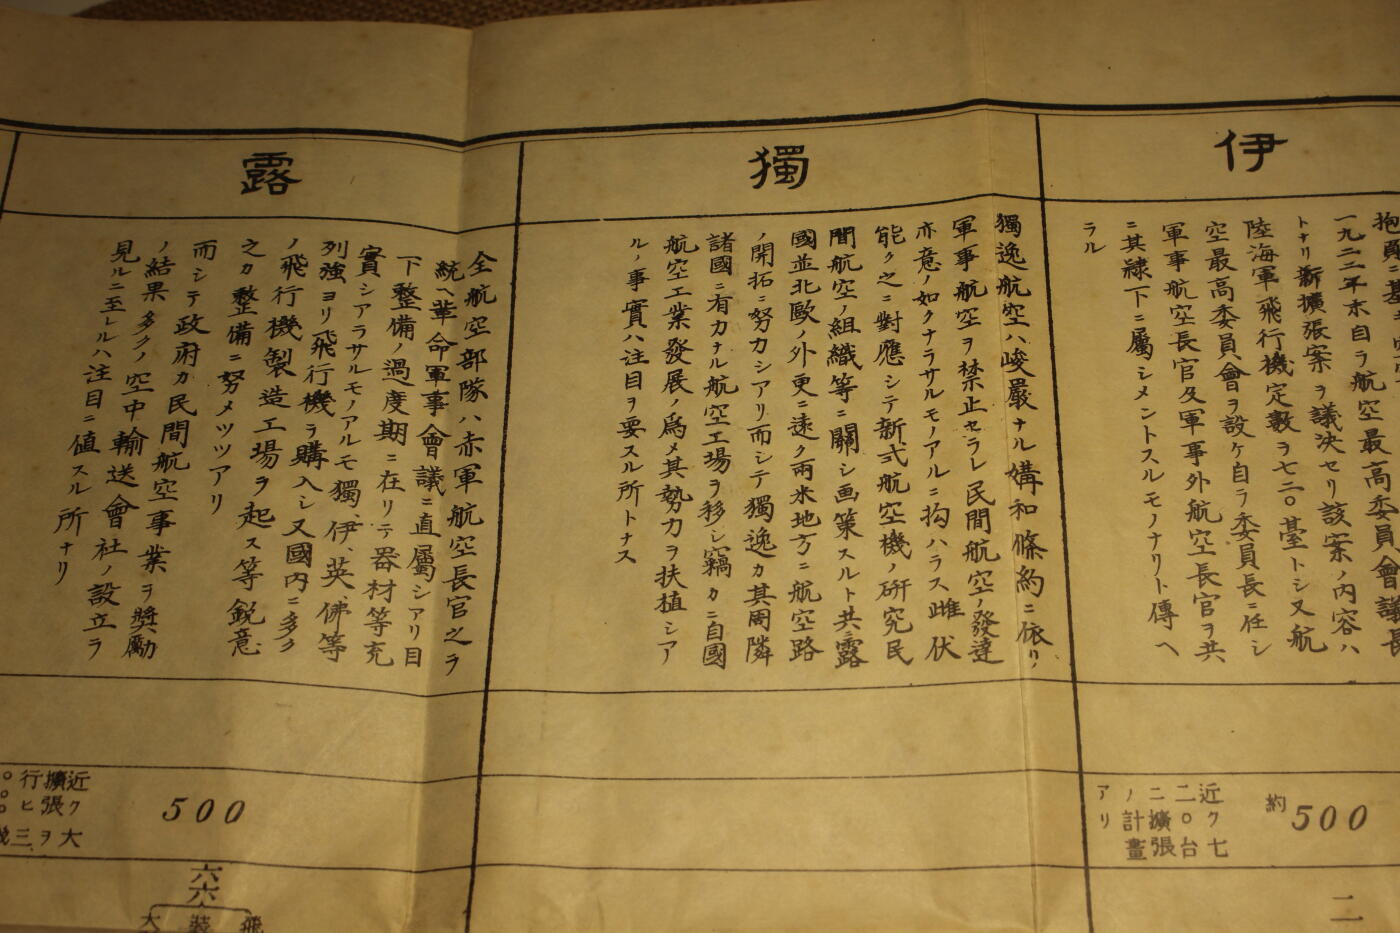 伊
一九二二年末自ラ航空最高委員會議長
トナリ新擴張案ヲ議決セリ該案ノ内容ハ
陸海軍飛行機定數ヲ七二〇臺トシ又航
空最高委員會ヲ設ケ自ラ委員長ニ任シ
軍事航空長官及軍事外航空長官ヲ共
ニ其隷下ニ屬シメントスルモノナリト傳ヘ
ラル
約500
近ク七
二〇台
ニ擴張
ノ計畫
アリ
二
獨
獨逸航空ハ峻嚴ナル媾和條約ニ依リ
軍事航空ヲ禁止セラレ民間航空ノ發達
亦意ノ如クナラサルモノアルニ拘ハラス雌伏
能ク之ニ對應シテ新式航空機ノ研究民
間航空ノ組織等ニ關シ画策スルト共ニ露
國並北歐ノ外更ニ遠ク兩米地方ニ航空路
ノ開拓ニ努力シアリ而シテ獨逸カ其周隣
諸國ニ有力ナル航空工場ヲ移シ竊カニ自國
航空工業發展ノ爲メ其勢力ヲ扶植シア
ルノ事實ハ注目ヲ要スル所トナス
露
全航空部隊ハ赤軍航空長官之ヲ
統ヘ革命軍事會議ニ直屬シアリ目
下整備ノ過度期ニ在リテ器材等充
實シアラサルモノアルモ獨、伊、英、佛等
列強ヨリ飛行機ヲ購入シ又國内ニ多ク
ノ飛行機製造工場ヲ起ス等鋭意
之カ整備ニ努メツツアリ
而シテ政府カ民間航空事業ヲ奬勵
ノ結果多クノ空中輸送會社ノ設立ヲ
見ルニ至レルハ注目ニ値スル所ナリ
500
近ク大
擴張ヲ
行ヒ三
六六
飛
裝
大